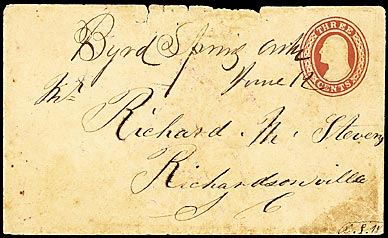 Byrd Spring Arks
June 12
THREE
CENTS
Mr
Richard. M. Stevens
Richardsonville